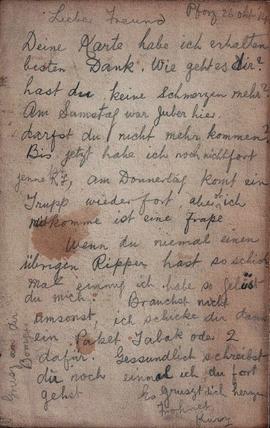 Lieber Freund
Pforz 26 okt.
Deine Karte habe ich erhalten
besten Dank. Wie geht es dir?
hast du keine Schmerzen mehr?
Am Samstag war Huber hier.
darfst du nicht mehr kommen?
Bis jetzt habe ich noch nicht fort
am Donnerstag kommt ein
Trupp wieder fort, aber ich
mitkomme ist eine frage
Wenn du niemal einen
übrigen Ripper hast so schick
mal einmal ich habe so gelüst
du mich. Brauchst nicht
umsonst, ich schicke dir dann
ein Paket Tabak oder 2
dafür. Gesundlich schreibst
dir noch einmal ich du fort
gehst
Es grusst dich herzl
Gruss an die